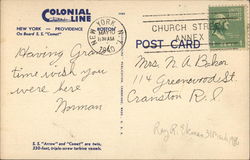 COLONIAL
LINE
NEW YORK — PROVIDENCE
BOSTON
On Board S. S. "Comet"
NEW YORK, N.Y.
1940
CHURCH ST
ANNEX
POST CARD
Having Grand
time wish you
were here
Norman
Mrs. N. A. Baker
114 Greenwood St.
Cranston R. I
S. S. "Arrow" and "Comet" are twin,
320-foot, triple-screw turbine vessels.